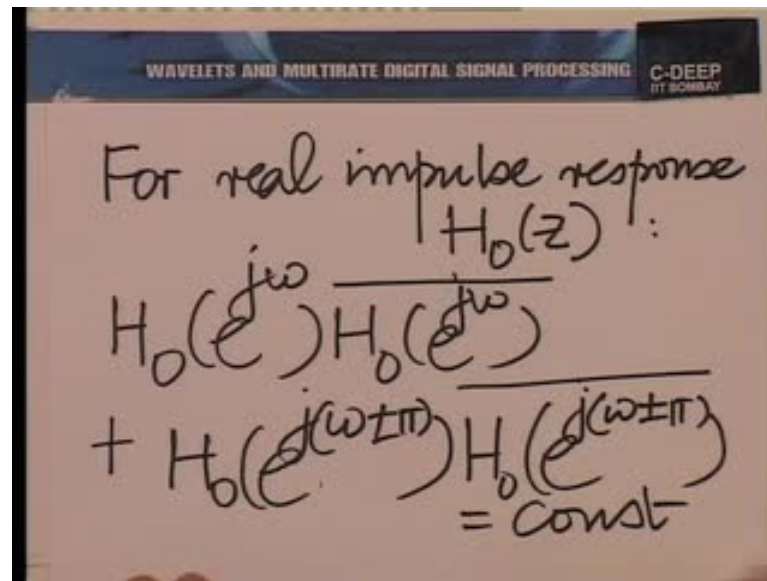 WAVELETS AND MULTIRATE DIGITAL SIGNAL PROCESSING
C-DEEP
IIT BOMBAY
For real impulse response
H₀(z) :
H₀(e^{jω}) \overline{H₀(e^{jω})}
+ H₀(e^{j(ω±π)}) \overline{H₀(e^{j(ω±π)})}
= const